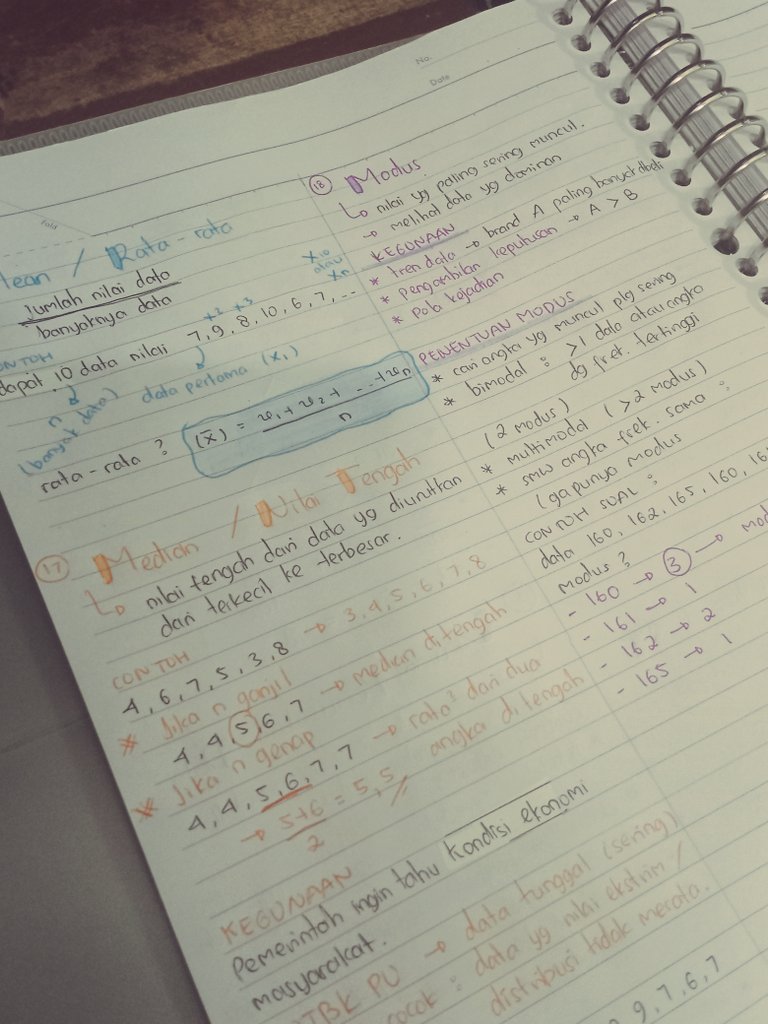 No.
Date
Mean / Rata-rata
Jumlah nilai data
banyaknya data
CONTOH
x2 x3
x10
atau
xn
dapat 10 data nilai 7, 9, 8, 10, 6, 7, ...
n
(banyak data)
data pertama (x1)
rata-rata ? (x̄) = x1 + x2 + ... + xn
n
17 Median / Nilai Tengah
↳ nilai tengah dari data yg diurutkan
dari terkecil ke terbesar.
CONTOH
4, 6, 7, 5, 3, 8 → 3, 4, 5, 6, 7, 8
* Jika n ganjil
4, 4, 5, 6, 7 → median ditengah
* Jika n genap
4, 4, 5, 6, 7, 7 → rata² dari dua
angka ditengah
→ 5+6 = 5,5
2
KEGUNAAN
Pemerintah ingin tahu kondisi ekonomi
masyarakat.
TBK PU → data tunggal (sering)
cocok : data yg nilai ekstrim /
distribusi tidak merata.
18 Modus
↳ nilai yg paling sering muncul.
→ melihat data yg dominan
KEGUNAAN
* tren data → brand A paling banyak dibeli
* pengambilan keputusan → A > B
* pola kejadian
PENENTUAN MODUS
* cari angka yg muncul plg sering
* bimodal : >1 data atau angka
dg frek. tertinggi
(2 modus)
* multimodal (>2 modus)
* smw angka frek. sama :
(ga punya modus
CONTOH SOAL :
data 160, 162, 165, 160, 16
Modus ?
- 160 → 3 → mod
- 161 → 1
- 162 → 2
- 165 → 1
9, 7, 6, 7